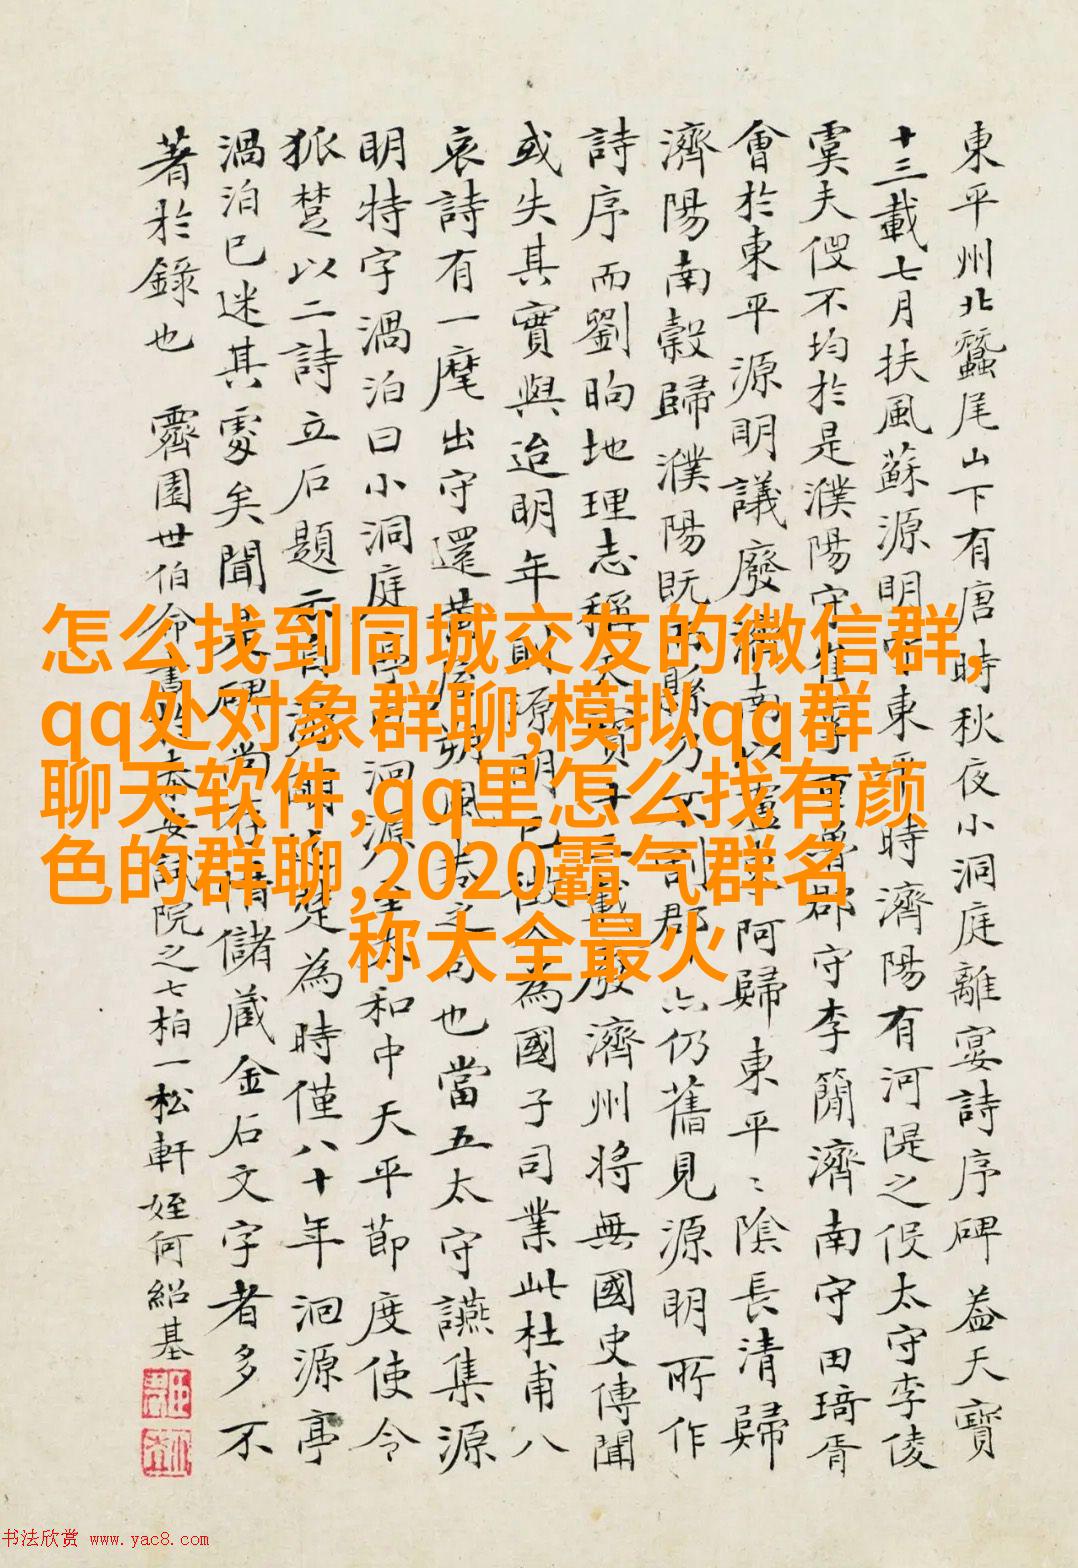 東平州北蠶尾山下有唐時秋夜小洞庭離宴詩序碑 蓋天寶
十三載七月扶風蘇源明守東平時濟陽有河隄之役太守李倰
虞夫役不均於是濮陽守崔季重魯郡守李簡濟南守田琦胥
會於東平源明議廢濟南以盧東阿歸東平〻陰長清歸
濟陽南穀歸濮陽既縣郡仍舊見源明所作
詩序而劉昫地理志稱天寶十三載廢濟州將無國史傳聞
或失其實與迨明年源明為國子司業此杜甫八
哀詩有一麾出守還黃屋朔風卷之句也當五太守讌集源
明特字渦泊曰小洞庭亭曰洄源和中天平節度使令
狐楚以二詩立石題云為時僅八十年洄源亭
渦泊已迷其處矣聞碑尚存儲藏金石文字者多不
著於錄也 霽園世伯命書奉安試院之七柏一松軒 姪何紹基
怎么找到同城交友的微信群,
qq处对象群聊,模拟qq群
聊天软件,qq里怎么找有颜
色的群聊,2020霸气群名
称大全最火
书法欣赏 www.yac8.com